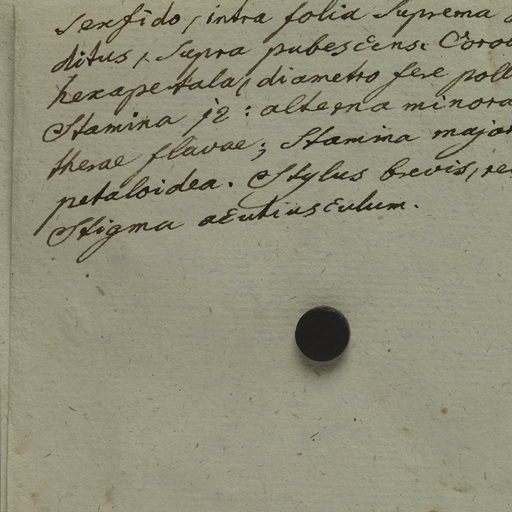 sexfido, intra folia Suprema
ditus, Supra pubescens. Coro
hexapetala, diametro fere poll
Stamina 12: alterna minora
therae flavae; Stamina major
petaloidea. Stylus brevis, re
Stigma acutiusculum.